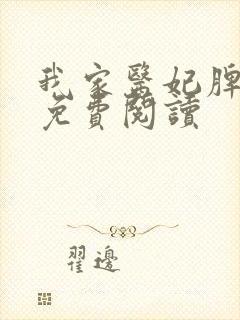 我家醫妃脾
免費閱讀
翟邊